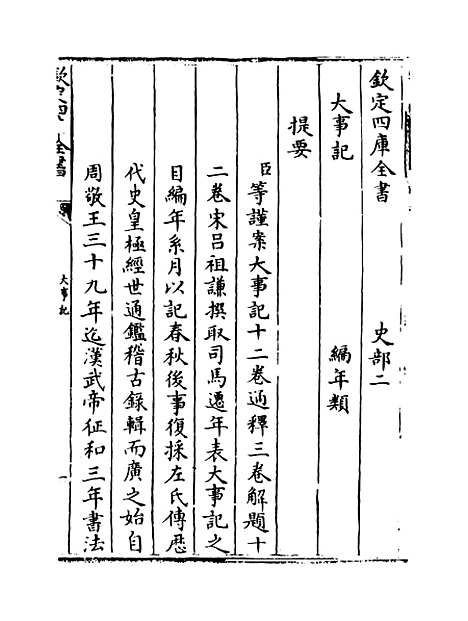 欽定四庫全書　史部二
大事記　編年類
提要
臣等謹案大事記十二卷通釋三卷解題十
二卷宋呂祖謙撰取司馬遷年表大事記之
目編年系月以記春秋後事復採左氏傳歴
代史皇極經世通鑑稽古録輯而廣之始自
周敬王三十九年迄漢武帝征和三年書法
全書
大事記
一